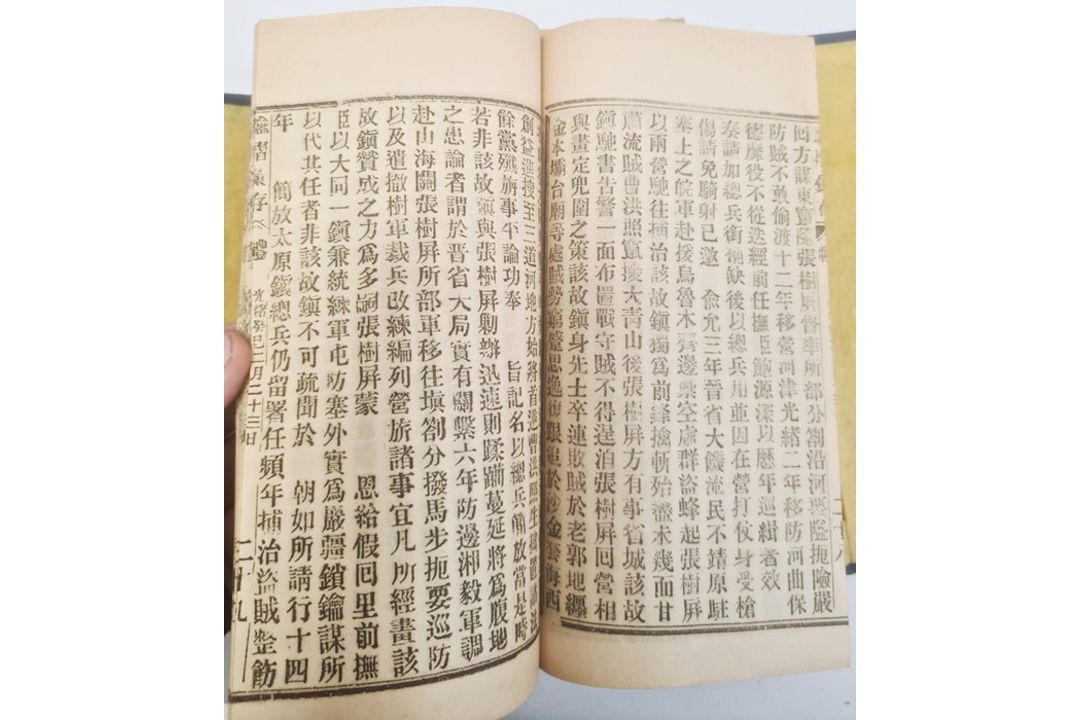 回方謀東竄隨張樹屏督率所部分劄沿河要隘扼險嚴
防賊不敢偷渡十二年移營河津光緒二年移防河曲保
德靡役不從迭經前任撫臣鮑源深以歷年巡緝著效
奏請加總兵銜補缺後以總兵用並因在營打仗身受槍
傷請免騎射已邀 俞允三年晉省大饑流民不靖原駐
塞上之皖軍赴援烏魯木齊邊禦空虛群盜蜂起張樹屏
以兩營馳往捕治該故鎮獨爲前鋒擒斬殆盡未幾而甘
肅流賊曹洪照竄擾大青山後張樹屏方有事省城該故
鎮馳書告警一面布置戰守賊不得逞洎張樹屏回營相
與畫定兜圍之策該故鎮身先士卒連敗賊於老郭地纏
金本壩台廟等處賊勢窮蹙思逸復跟追於沙金套海西
二十八
創益進搜至三道河地方始將首逆曹洪照生擒
餘黨殲旃事平論功奉 旨記名以總兵簡放當是時
若非該故鎮與張樹屏勦辦迅速則蹂躪蔓延將爲腹地
之患論者謂於晉省大局實有關繫六年防邊湘毅軍調
赴山海關張樹屏所部軍移往填劄分撥馬步扼要巡防
以及遣撤樹軍裁兵改練編列營旂諸事宜凡所經畫該
故鎮贊成之力爲多嗣張樹屏蒙 恩給假回里前撫
臣以大同一鎮兼統練軍屯防塞外實爲嚴疆鎖鑰謀所
以代其任者非該故鎮不可疏聞於 朝如所請行十四
年 簡放太原鎮總兵仍留署任頻年捕治盜賊整飭
諭摺彙存 禮 光緒癸巳二月二十三日
二十九